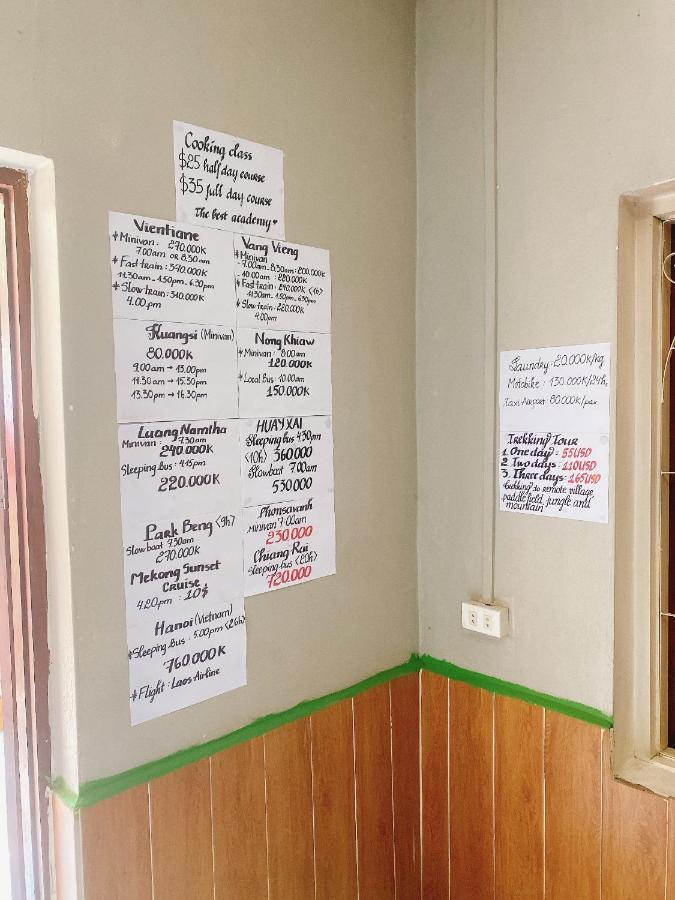 Cooking class
$25 half day course
$35 full day course
The best academy ♥
Vientiane
* Minivan: 270.000K
7.00am or 8.30am
* Fast train: 390.000K
11.30am - 1.50pm - 6.30pm
* Slow train: 310.000K
4.00.pm
Vang Vieng
* Minivan
- 7.00am - 8.30am: 200.000K
- 10.00am: 220.000K
* Fast train: 240.000K <1h>
11.30am - 1.50pm - 6.30pm
* Slow train: 220.000K
4.00pm
Kuangsi (Minivan)
80.000K
9.00am → 13.00pm
11.30am → 15.30pm
13.30pm → 16.30pm
Nong Khiaw
* Minivan: 8.00am
120.000K
* Local Bus: 10.00am
150.000K
Luang Namtha
Minivan: 7.30am
240.000K
Sleeping Bus: 4.15pm
220.000K
HUAY XAI
Sleeping bus 4:30pm
<10h> 360000
Slowboat 7.00am
530.000
Park Beng <9h>
Slow boat 7.30am
270.000K
Mekong Sunset
Cruise
4.20pm : 10$
Phonsavanh
Minivan 7:00am
230.000
Chiang Rai
Sleeping bus <20h>
720.000
Hanoi (Vietnam)
* Sleeping Bus: 5.00pm <26h>
760.000K
* Flight: Laos Airline
Laundry: 20.000K/kg
Motobike: 130.000K/24h,
Taxi Airport 80000K/pax
Trekking Tour
1. One day: 55USD
2. Two days: 110USD
3. Three days: 165USD
trekking to remote village,
paddle field, jungle and
mountain